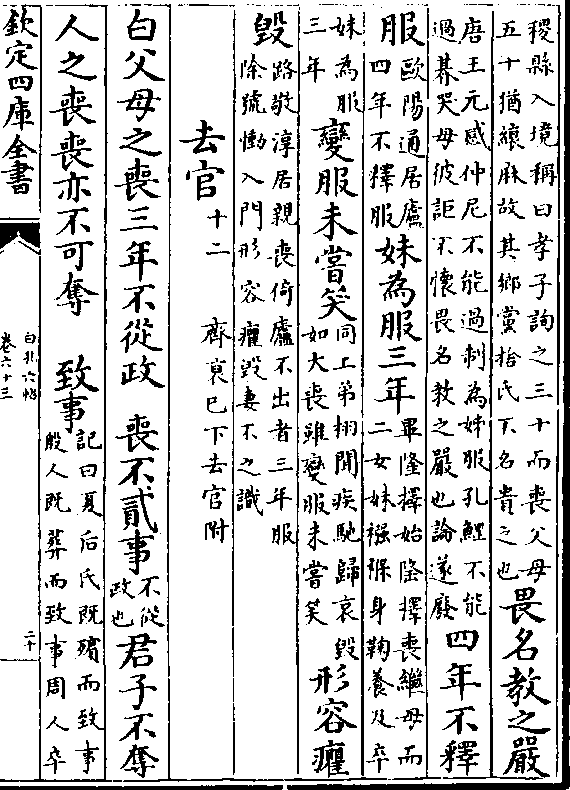 稷縣入境稱曰孝子詢之三十而喪父母
五十猶縗麻故其鄉黨拾氏不名貴之也
畏名教之嚴
唐王元感仲尼不能過制為姊服孔鯉不能
過朞哭母彼詎不懷畏名教之嚴也論遂廢
四年不釋
服
歐陽通居廬
四年不釋服
妹為服三年
畢隆擇始隆擇喪繼母而
二女妹襁褓身鞠養及卒
妹為服
三年
變服未嘗笑
同上弟栩聞疾馳歸哀毀
如大喪雖變服未嘗笑
形容癯
毀
路敬淳居親喪倚廬不出者三年服
除號慟入門形容癯毀妻不之識
去官 十二 齊衰已下去官附
白父母之喪三年不從政 喪不貳事
不從
政也
君子不奪
人之喪喪亦不可奪 致事
記曰夏后氏既殯而致事
殷人既葬而致事周人卒
欽定四庫全書
白孔六帖
卷六十三
二十